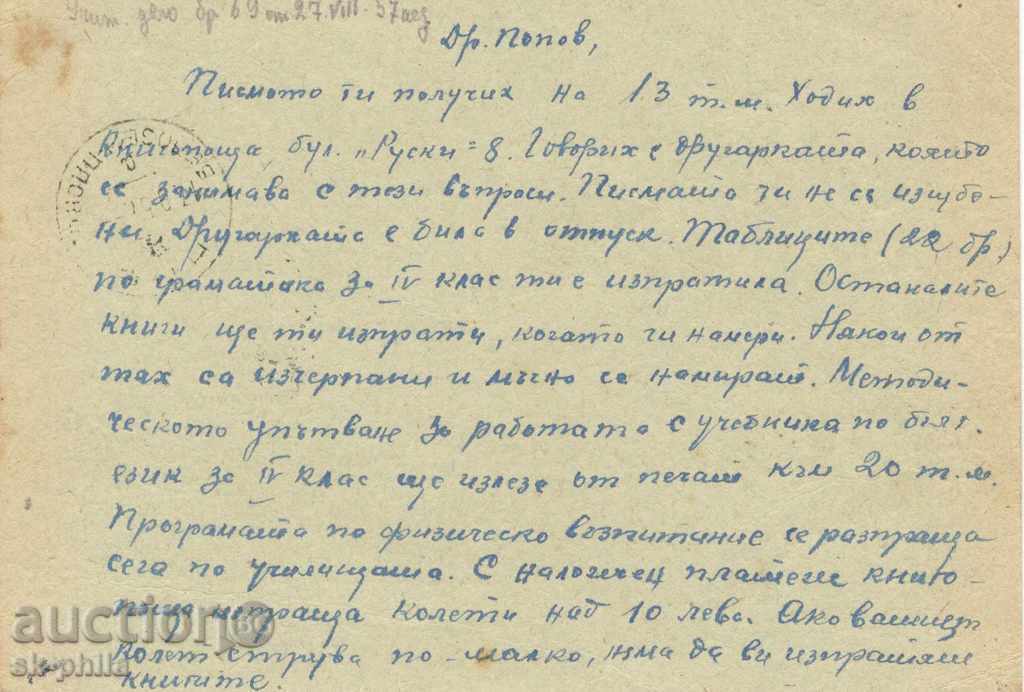 дело бр 69 от 27.VIII-57
Др. Попов,
Писмото ти получих на 13 т.м. Ходих в
Книгопоща бул. „Руски" 8. Говорих с другарката, която
се занимава с тези въпроси. Писмата ти не са изгубе-
ни. Другарката е била в отпуск. Таблиците (22 бр.)
по граматика за IV клас ти е изпратила. Останалите
книги ще ти изпрати, когато ги намери. Някои от
тях са изчерпани и мъчно се намират. Методи-
ческото упътване за работата с учебника по бълг.
език за IV клас ще излезе от печат към 20 т.м.
Програмата по физическо възпитание се разпраща
сега по училищата. С наложен платеж книго-
поща изпраща колети над 10 лева. Ако вашият
колет струва по-малко, няма да ви изпратят
книгите.
auction
sk-phila